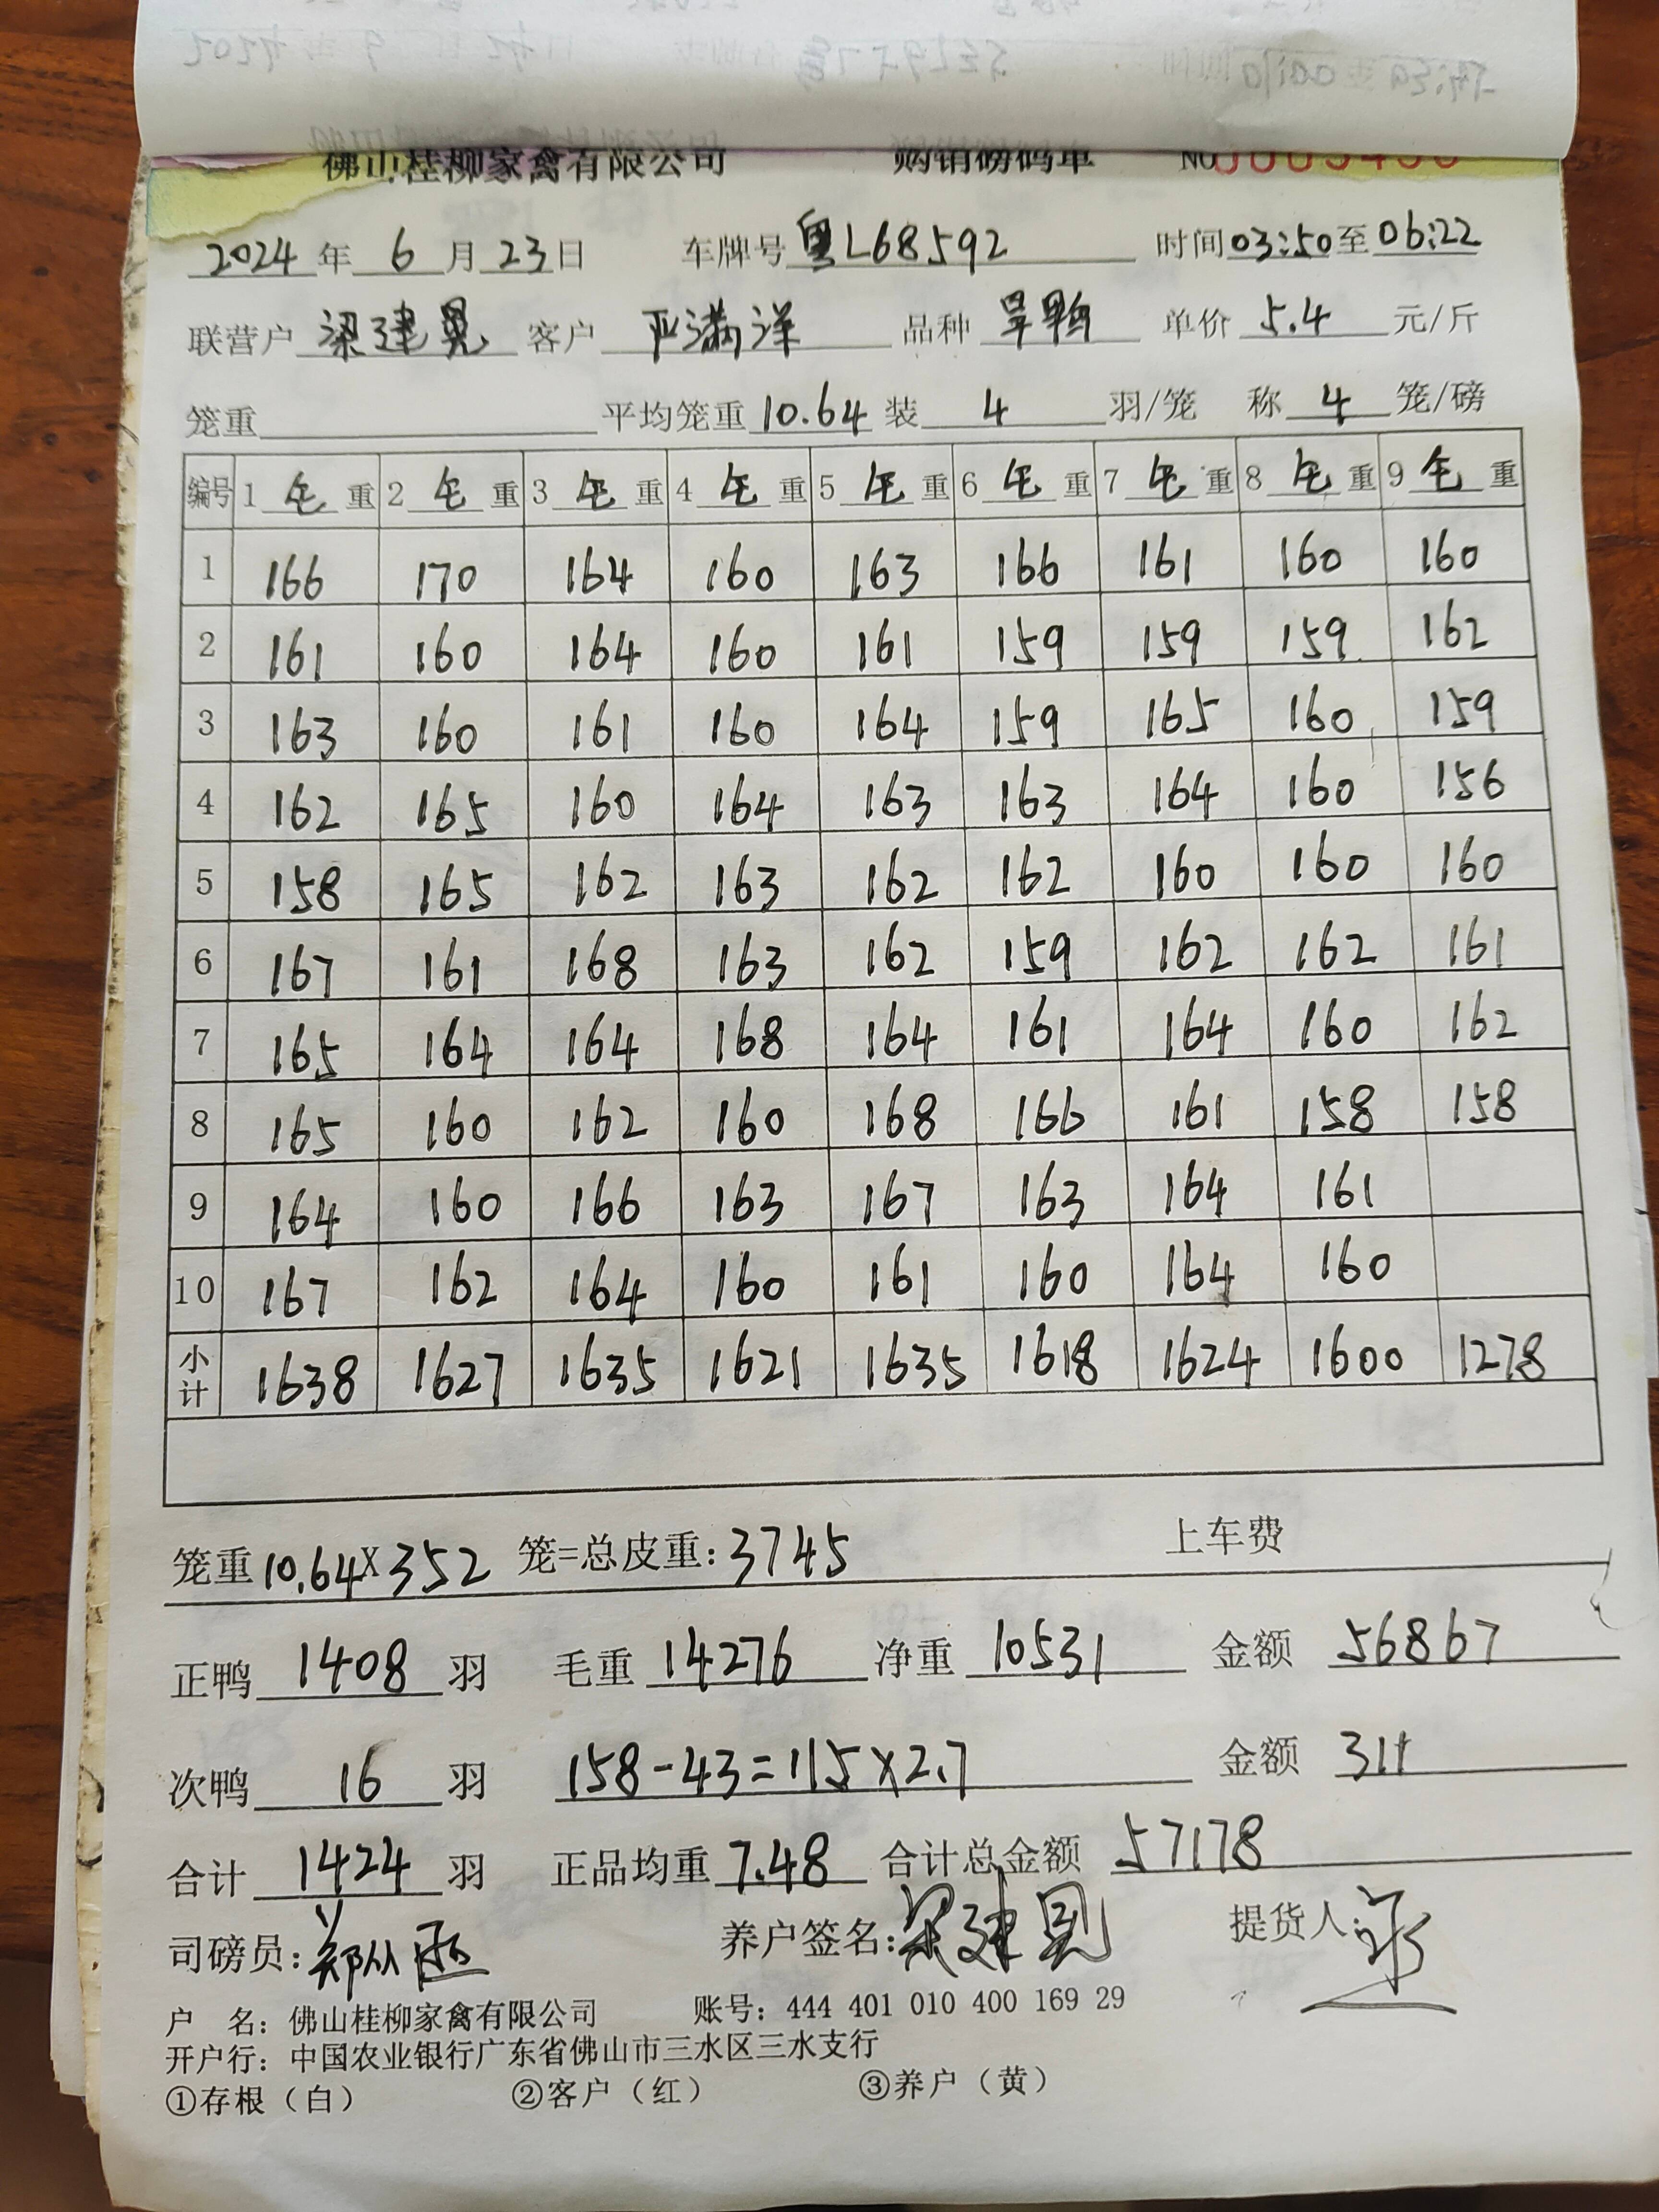 佛山桂柳家禽有限公司 购销磅码单 NO
2024年6月23日 车牌号粤L68592 时间03:50至06:22
联营户梁建晃 客户严满洋 品种旱鸭 单价5.4元/斤
笼重 平均笼重10.64装4羽/笼 称4笼/磅
编号 1毛重 2毛重 3毛重 4毛重 5毛重 6毛重 7毛重 8毛重 9毛重
1 166 170 164 160 163 166 161 160 160
2 161 160 164 160 161 159 159 159 162
3 163 160 161 160 164 159 165 160 159
4 162 165 160 164 163 163 164 160 156
5 158 165 162 163 162 162 160 160 160
6 167 161 168 163 162 159 162 162 161
7 165 164 164 168 164 161 164 160 162
8 165 160 162 160 168 166 161 158 158
9 164 160 166 163 167 163 164 161
10 167 162 164 160 161 160 164 160
小计 1638 1627 1635 1621 1635 1618 1624 1600 1278
笼重10.64X352笼=总皮重:3745 上车费
正鸭1408羽 毛重14276净重10531 金额56867
次鸭16羽 158-43=115×2.7 金额311
合计1424羽 正品均重7.48合计总金额57178
司磅员: 养户签名: 提货人:
户 名: 佛山桂柳家禽有限公司 账号: 444 401 010 400 169 29
开户行: 中国农业银行广东省佛山市三水区三水支行
①存根(白) ②客户(红) ③养户(黄)